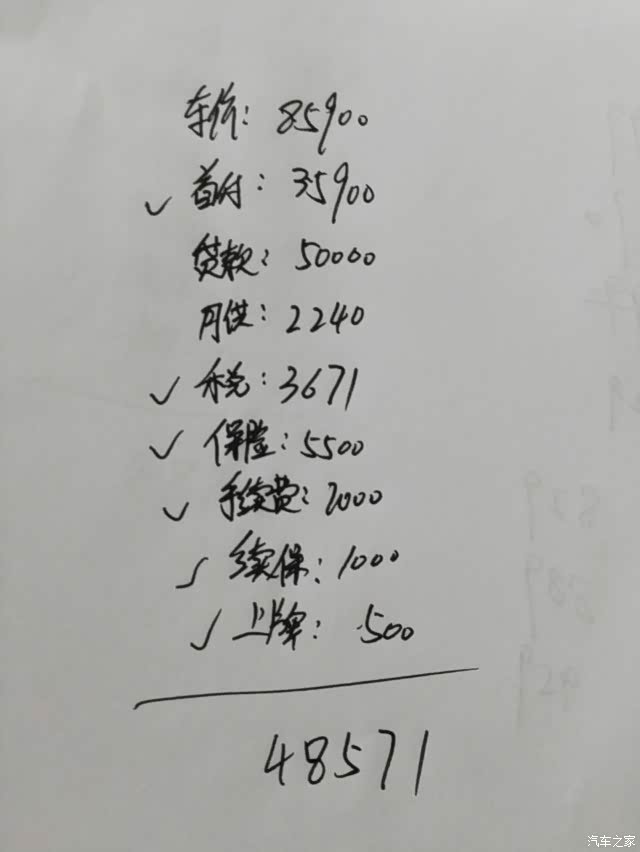 车价: 85900
✓ 首付: 35900
贷款: 50000
月供: 2240
✓ 税: 3671
✓ 保险: 5500
✓ 手续费: 2000
✓ 续保: 1000
✓ 上牌: 500
48571
汽车之家